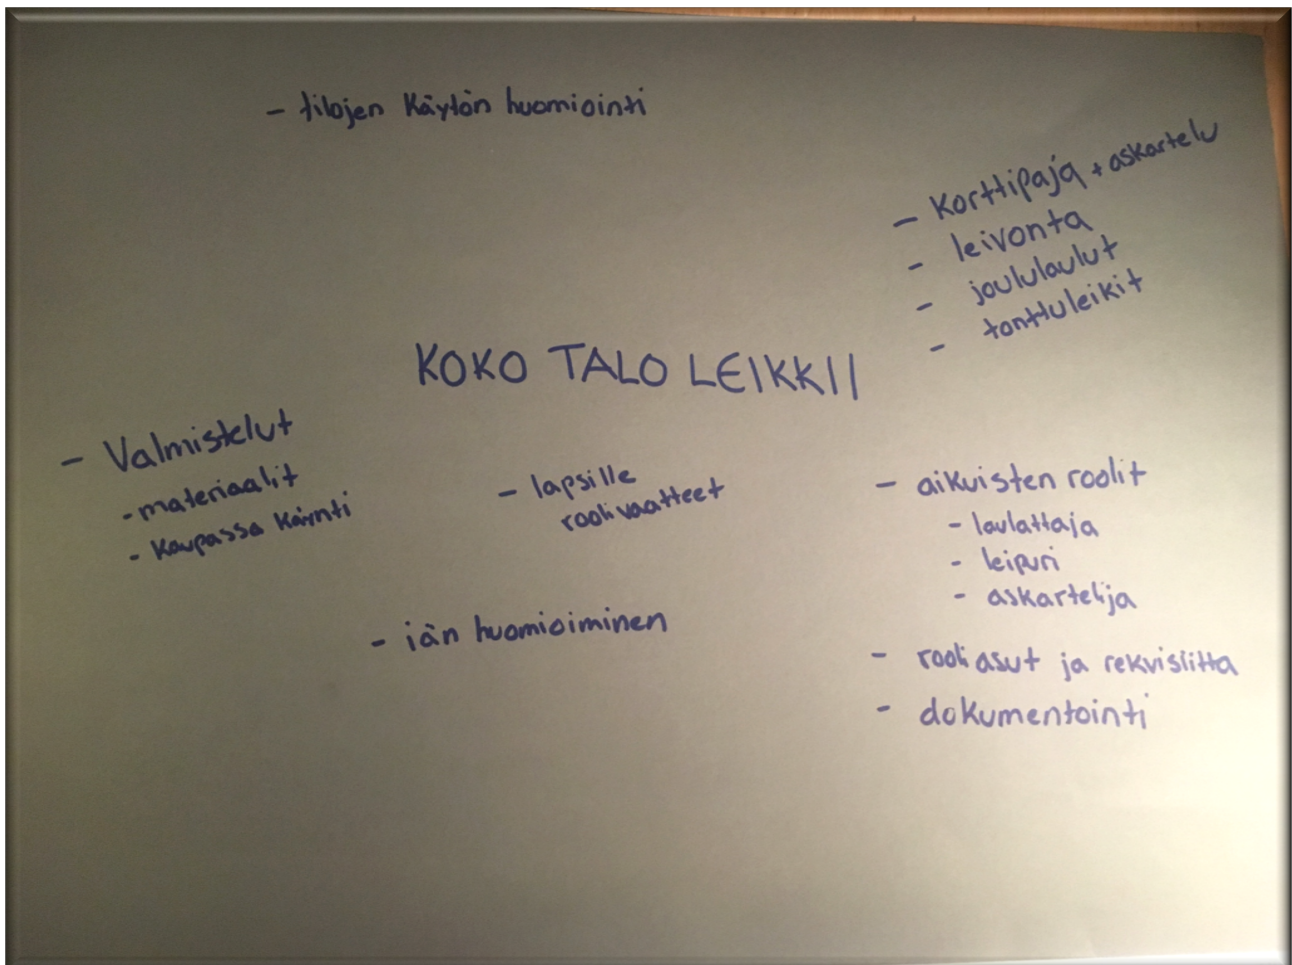 - tilojen käytön huomiointi
- Korttipaja + askartelu
- leivonta
- joululaulut
- tonttuleikit
KOKO TALO LEIKKII
- Valmistelut
- materiaalit
- Kaupassa käynti
- lapsille
roolivaatteet
- iän huomioiminen
- aikuisten roolit
- laulattaja
- leipuri
- askartelija
- rooliasut ja rekvisiitta
- dokumentointi